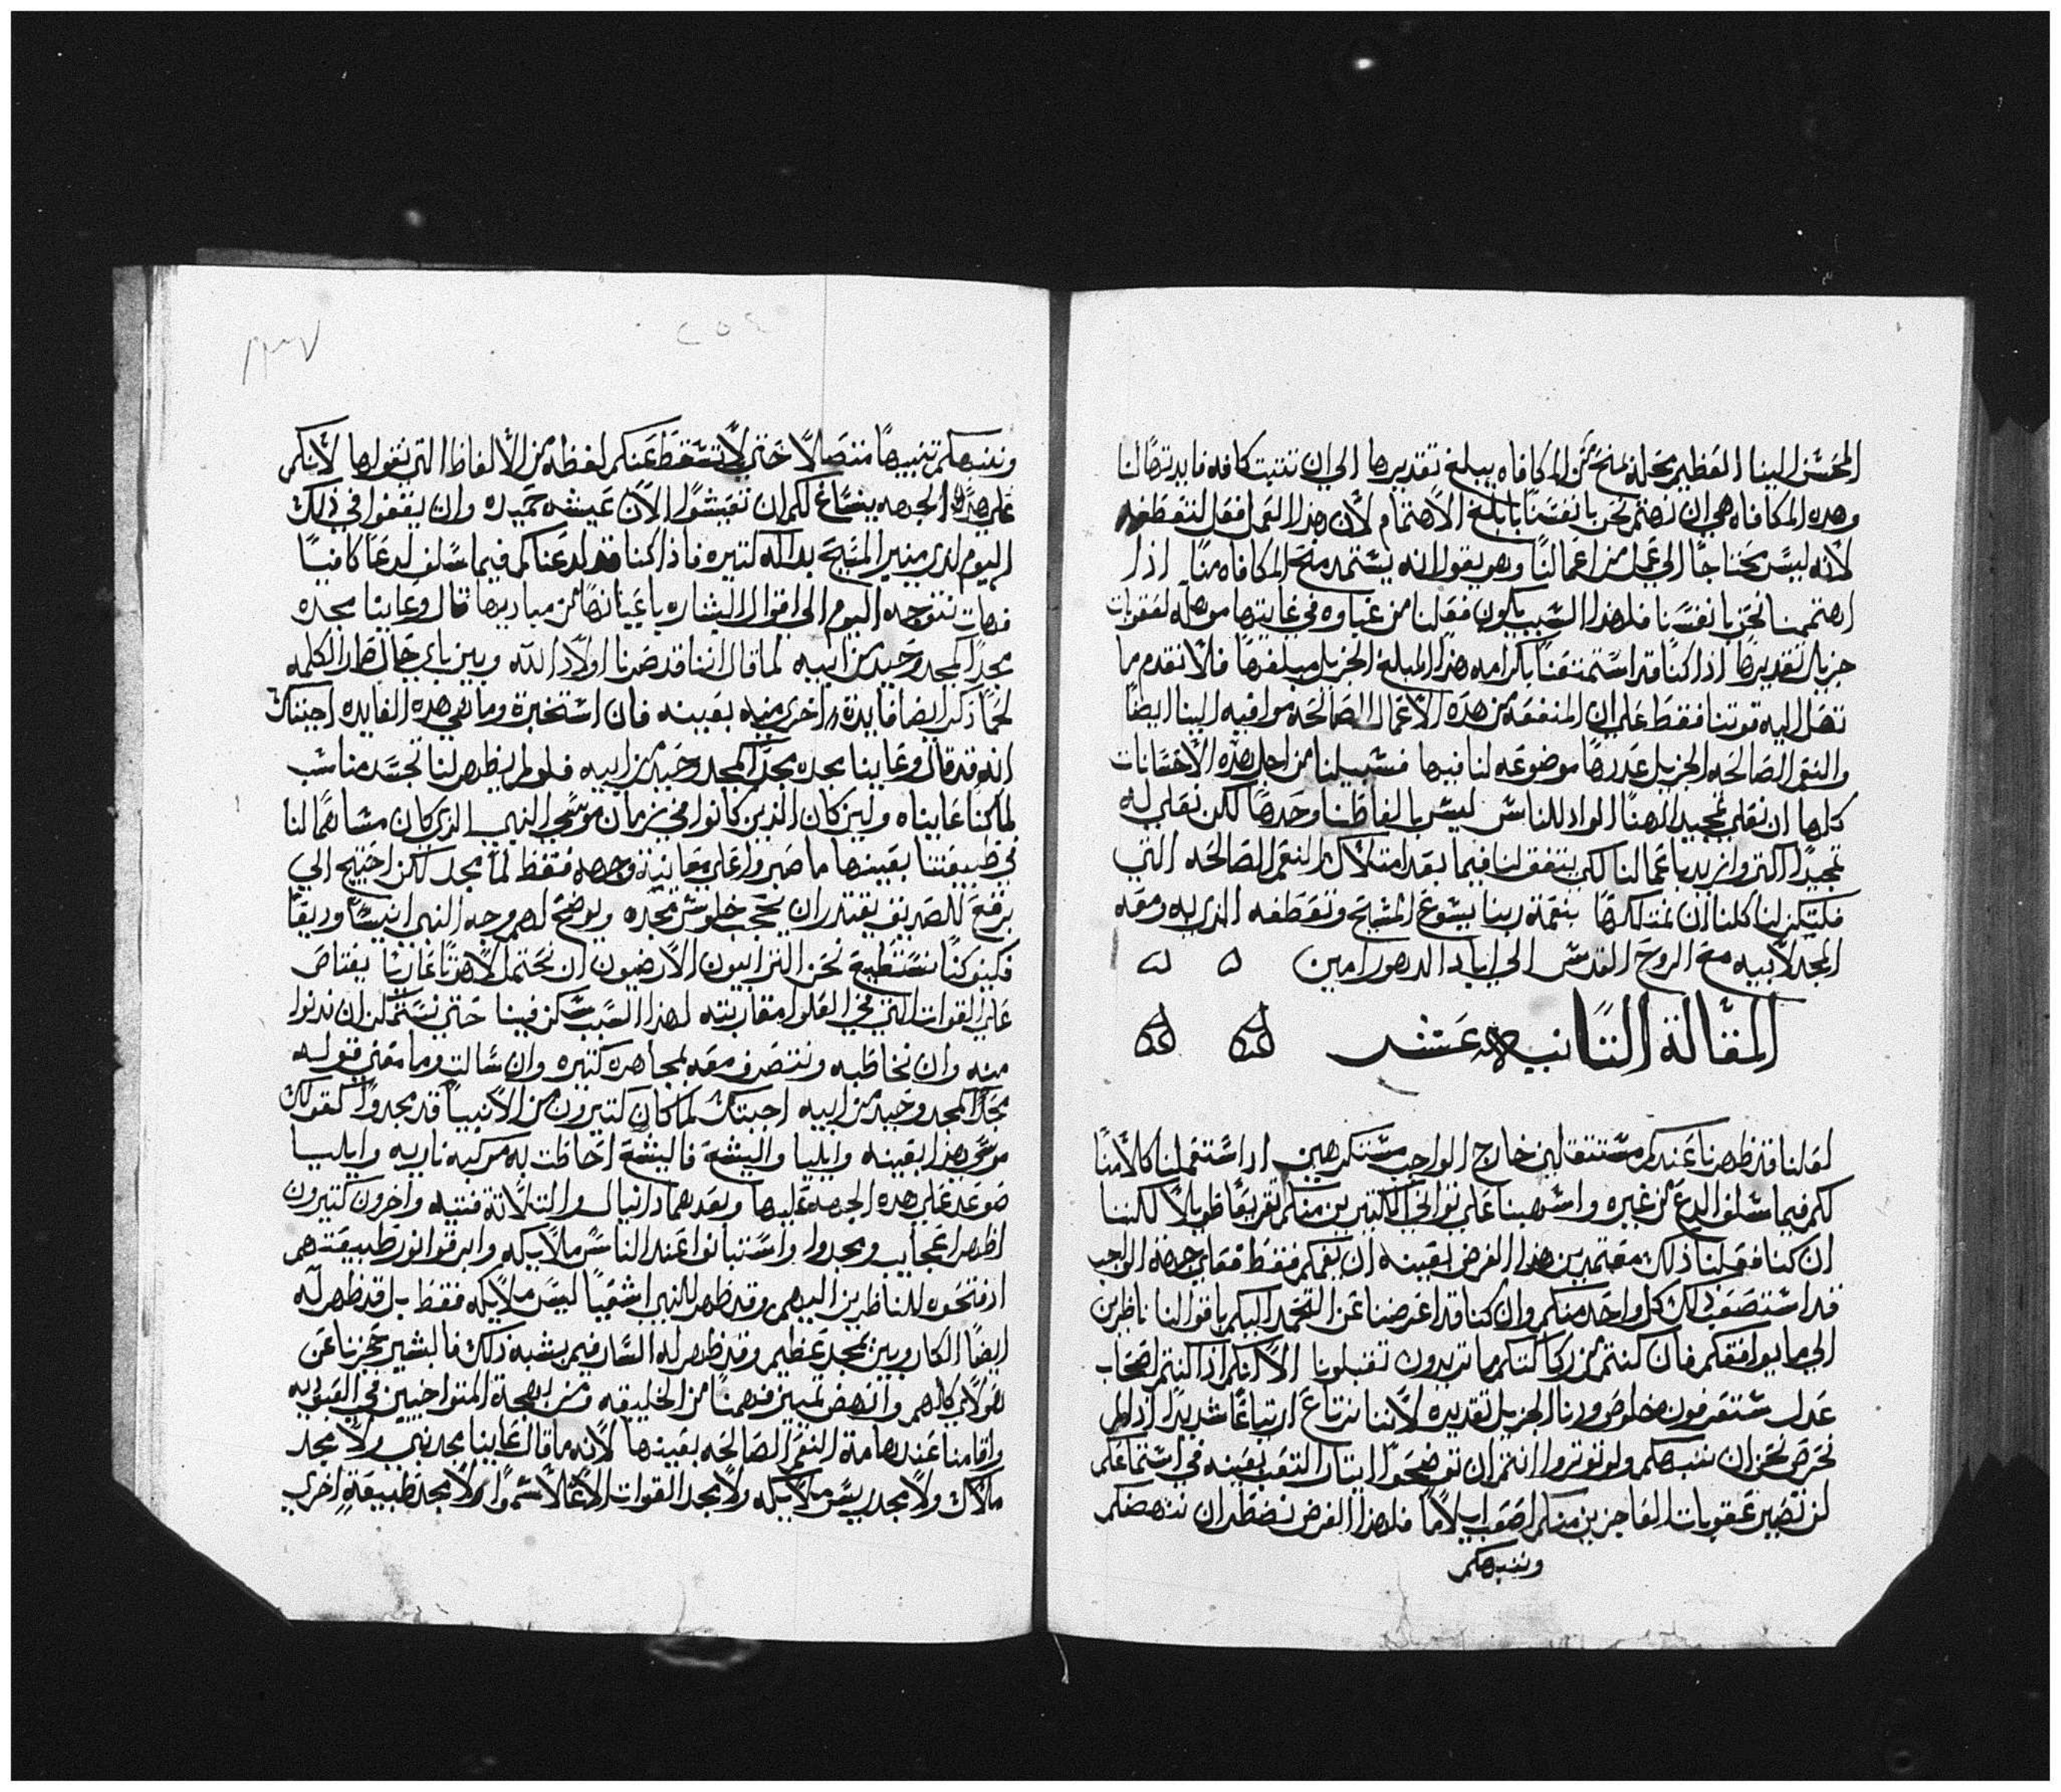 المحسن الينا العظيم محله نمنح من المكافاه يبلغ تقديرها الي ان تتبت كافه فايدتها لنا
وهده المكافاه هي ان نهتم نحن بانفسنا بابلغ الاهتمام لان هذا العمل افعل لتعطفه
لانه ليس محتاجًا الي عمل من اعمالنا وهو يقول انه يستمد منح المكافاه منا اذا
اهتممنا نحن بانفسنا فلهذا السبب يكون فعلنا من غباوه في غايتها موهله لعقوبات
جزيل تقديرها اذا كنا قد استمتعنا بكرامه هذا المبلغ الجزيل مبلغها فلا نقدم ما
تصل اليه قوتنا فقط علي ان المنفعه من هذه الاعمال الصالحه مواقيه الينا ايضًا
والنعم الصالحه الجزيل عددها موضوعه لنا فيها فسبيلنا من اجل هذه الاحسانات
كلها ان نعلي تمجيد الهنا الواد للناس ليس بالفاظنا وحدها لكن نعلي له
تمجيدًا اكتر وازيد باعمالنا لكي يتفق لنا فيما بعد امتلاك النعم الصالحه التي
فليكن لنا كلنا ان نمتلكها بنعمة ربنا يسوع المسيح وتعطفه الذي له ومعه
المجد لابيه مع الروح القدس الي اباد الدهور امين
المقالة التانيه عشر
لعلنا قد ظهرنا عندكم مستتقلين خارج الواجب مستكرهين اد استعملنا كلامنا
لكم فيما سلف الدع من غيره واسهبنا علي تواني الكتيرين منكم تقريعًا طويلاً لكننا
ان كنا فعلنا ذلك معتمدين هذا الغرض بعينه ان نغمكم فقط فعلي جهة الواجب
قد استصعب ذلك كل واحد منكم وان كنا قد اعرضنا عن التحمد اليكم باقوالنا ناظرين
الي ما يوافقكم فان كنتم من ركاكتكم ما تريدون تقبلونا الا انكم اذا كنتم اصحاب
عدل ستعرفون خلوص ودنا الجزيل تقديره لاننا نرتاع ارتياعًا شديدًا اذا لم
نحرص نحن ان ننبهكم ولو توتروا انتم ان توضحوا ايتار التعب بعينه في استماعكم
لن تصير عقوبات العاجزين منكم اصعب ايلامًا فلهذا الغرض نضطر ان ننهضكم
وننبهكم
٢٥٤
وننبهكم تنبيهًا متصلاً حتي لا تسقط عنكم لفظة من الالفاظ التي نقولها لانكم
علي هذه الجهه ينساغ لكم ان تعيشوا الان عيشه حميده وان يقفوا في ذلك
اليوم لدي منبر المسيح بداله كتيره فاذا كنا قد لدعناكم فيما سلف لدعًا كافيًا
فهات نتوجه اليوم الي اقوال البشاره باعيانها من مباديها قال وعاينا مجده
مجدًا كمجد وحيد من ابيه لما قال اننا قد صرنا اولاد الله وبين باي حال صار الكلمه
لحمًا ذكر ايضا فايدة اخري منه بعينه فان استخبرة وما هي هده الفايده اجبتك
انه قد قال وعاينا مجده مجدًا كمجد وحيد من ابيه فلو لم يظهر لنا بجسد مناسب
لما كنا عايناه ولين كان الذين كانوا في زمان موسي النبي الذي كان مشابهًا لنا
في طبيعتنا بعينها ما صبروا علي معاينة وجهه فقط لما مجد لكن احتيج الي
برقع للصديق يقتدر ان يحجب خلوص مجده ويوضح لهم وجه النبي انيسًا وديعًا
فكيف كنا نستطيع نحن الترابيون الارضيون ان نحتمل لاهوتًا عاريًا يعتاص
علي القوات التي في العلو مقاربته لهذا السبب سكن فينا حتي نستمكن ان ندنوا
منه وان نخاطبه ونتصرف معه بمجاهره كتيره وان سالت وما معني قوله
مجدًا كمجد وحيد من ابيه اجبتك لما كان كتيرون من الانبيا قد مجدوا كقولك
موسي هذا بعينه وايليا واليشع فاليشع احاطت به مركبه ناريه وايليا
صوعد علي هده الجهه عليها وبعدهما دانيال والتلاتة فتيه واخرون كتيرون
اظهروا عجايب ومجدوا واستبانوا عند الناس ملايكه وابرقوا نور طبيعتهم
اد فتحوه للناظرين اليهم وقد ظهر للنبي اشعيا ليس ملايكه فقط بل قد ظهر له
ايضا الكاروبين بمجد عظيم وقد ظهر له السارافيم يشبه ذلك فالبشير حجزنا عن
هولاي كلهم وانهض تمييز فهمنا من الخليقه ومن بهجة المتواخيين في العبوديه
واقامنا عند هامة النعم الصالحه بعينها لانه ما قال عاينا مجد نبي ولا مجد
ملاك ولا مجد رييس ملايكه ولا مجد القوات الاعلا سموًا ولا مجد طبيعة اخري